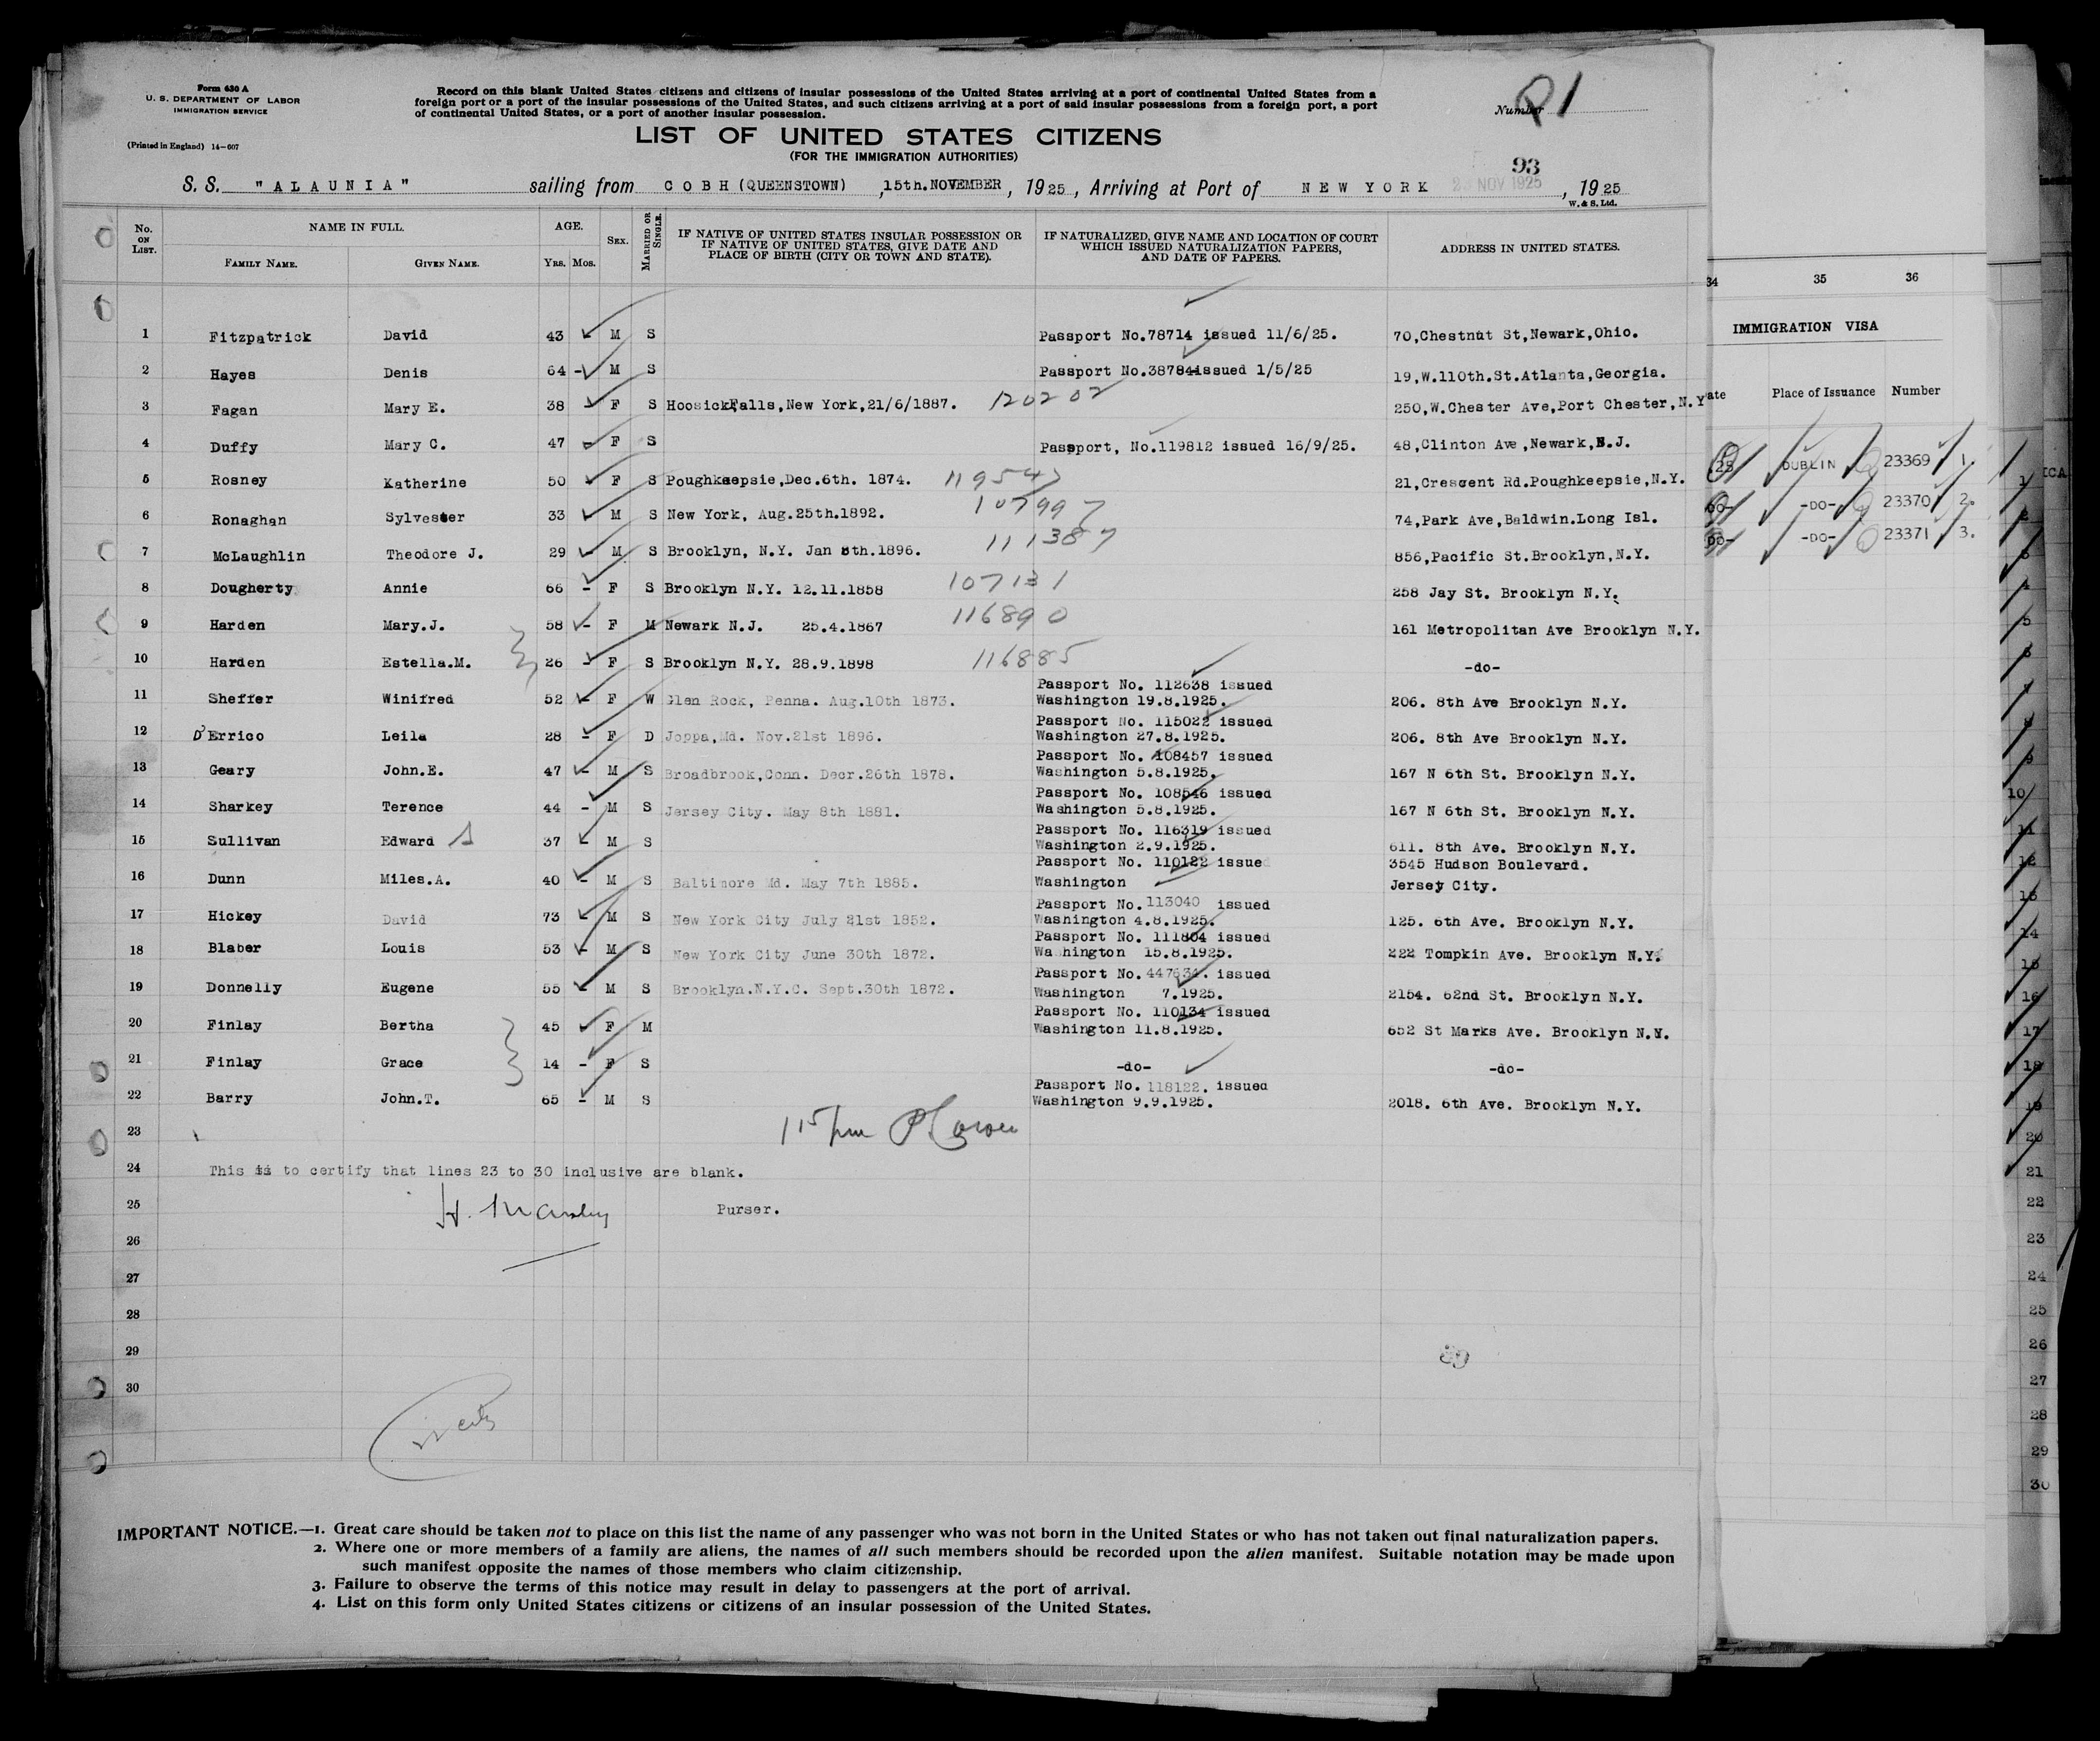 Form 630 A
U. S. DEPARTMENT OF LABOR
IMMIGRATION SERVICE
(Printed in England) 14—607
Record on this blank United States citizens and citizens of insular possessions of the United States arriving at a port of continental United States from a
foreign port or a port of the insular possessions of the United States, and such citizens arriving at a port of said insular possessions from a foreign port, a port
of continental United States, or a port of another insular possession.
Number
LIST OF UNITED STATES CITIZENS
(FOR THE IMMIGRATION AUTHORITIES)
93
S. S. "ALAUNIA" sailing from COBH (QUEENSTOWN) ,15th.NOVEMBER, 1925, Arriving at Port of NEW YORK NOV 1925, 1925
W. & S. Ltd.
No. ON LIST. NAME IN FULL. AGE. SEX. MARRIED OR SINGLE. IF NATIVE OF UNITED STATES INSULAR POSSESSION OR IF NATIVE OF UNITED STATES, GIVE DATE AND PLACE OF BIRTH (CITY OR TOWN AND STATE). IF NATURALIZED, GIVE NAME AND LOCATION OF COURT WHICH ISSUED NATURALIZATION PAPERS, AND DATE OF PAPERS. ADDRESS IN UNITED STATES.
FAMILY NAME. GIVEN NAME. YRS. MOS.
1 Fitzpatrick David 43 M S Passport No.78714 issued 11/6/25. 70,Chestnut St,Newark,Ohio.
2 Hayes Denis 64 - M S Passport No.38784issued 1/5/25 19,W.110th.St.Atlanta,Georgia.
3 Fagan Mary E. 38 - F S Hoosick,Falls,New York,21/6/1887. 120202 250,W.Chester Ave,Port Chester,N.Y
4 Duffy Mary C. 47 - F S Passport, No.119812 issued 16/9/25. 48,Clinton Ave,Newark,N.J.
5 Rosney Katherine 50 - F S Poughkeepsie,Dec.6th. 1874. 119547 21,Crescent Rd.Poughkeepsie,N.Y.
6 Ronaghan Sylvester 33 - M S New York, Aug.25th.1892. 107997 74,Park Ave,Baldwin.Long Isl.
7 McLaughlin Theodore J. 29 - M S Brooklyn, N.Y. Jan 8th.1896. 111387 856,Pacific St.Brooklyn,N.Y.
8 Dougherty Annie 66 - F S Brooklyn N.Y. 12.11.1858 107131 258 Jay St. Brooklyn N.Y.
9 Harden Mary.J. 58 - F M Newark N.J. 25.4.1867 116890 161 Metropolitan Ave Brooklyn N.Y.
10 Harden Estella.M. 26 - F S Brooklyn N.Y. 28.9.1898 116885 -do-
11 Sheffer Winifred 52 - F W Glen Rock, Penna. Aug.10th 1873. Passport No. 112638 issued Washington 19.8.1925. 206. 8th Ave Brooklyn N.Y.
12 D'Errico Leila 28 - F D Joppa,Md. Nov.21st 1896. Passport No. 115022 issued Washington 27.8.1925. 206. 8th Ave Brooklyn N.Y.
13 Geary John.E. 47 - M S Broadbrook,Conn. Decr.26th 1878. Passport No. 108457 issued Washington 5.8.1925. 167 N 6th St. Brooklyn N.Y.
14 Sharkey Terence 44 - M S Jersey City. May 8th 1881. Passport No. 108546 issued Washington 5.8.1925. 167 N 6th St. Brooklyn N.Y.
15 Sullivan Edward 37 - M S Passport No. 116319 issued Washington 2.9.1925. 611. 8th Ave. Brooklyn N.Y.
16 Dunn Miles.A. 40 - M S Baltimore Md. May 7th 1885. Passport No. 110122 issue Washington 3545 Hudson Boulevard. Jersey City.
17 Hickey David 73 - M S New York City July 21st 1852. Passport No. 113040 issued Washington 4.8.1925. 125. 6th Ave. Brooklyn N.Y.
18 Blaber Louis 53 - M S New York City June 30th 1872. Passport No. 111804 issued Washington 15.8.1925. 222 Tompkin Ave. Brooklyn N.Y.
19 Donnelly Eugene 55 - M S Brooklyn.N.Y.C. Sept.30th 1872. Passport No. 447634. issued Washington 7.1925. 2154. 62nd St. Brooklyn N.Y.
20 Finlay Bertha 45 - F M Passport No. 110134 issued Washington 11.8.1925. 652 St Marks Ave. Brooklyn N.Y.
21 Finlay Grace 14 - F S -do- -do-
22 Barry John.T. 65 - M S Passport No. 118122. issued Washington 9.9.1925. 2018. 6th Ave. Brooklyn N.Y.
23
24 This is to certify that lines 23 to 30 inclusive are blank.
25 Purser.
26
27
28
29
30
IMPORTANT NOTICE.—1. Great care should be taken not to place on this list the name of any passenger who was not born in the United States or who has not taken out final naturalization papers.
2. Where one or more members of a family are aliens, the names of all such members should be recorded upon the alien manifest. Suitable notation may be made upon
such manifest opposite the names of those members who claim citizenship.
3. Failure to observe the terms of this notice may result in delay to passengers at the port of arrival.
4. List on this form only United States citizens or citizens of an insular possession of the United States.
34 35 36
IMMIGRATION VISA
ate Place of Issuance Number
DUBLIN 23369 1.
-DO- 23370 2.
-DO- 23371 3.
1
2
3
4
5
6
7
8
9
10
11
12
13
14
15
16
17
18
19
20
21
22
23
24
25
26
27
28
29
30